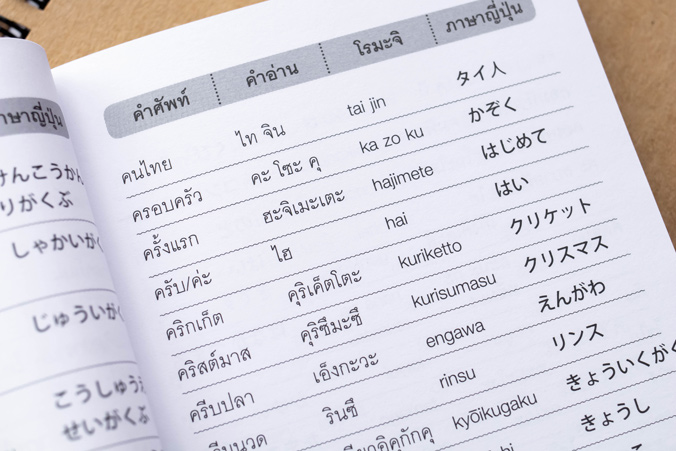 าษาญี่ปุ่น
けんこうかん
りがくぶ
しゃかいが
じゅうい
こうしゅう
せいがくぶ
คำศัพท์ คำอ่าน โรมะจิ ภาษาญี่ปุ่น
คนไทย ไท จิน tai jin タイ人
ครอบครัว คะ โซะ คุ ka zo ku かぞく
ครั้งแรก ฮะจิเมะเตะ hajimete はじめて
ครับ/ค่ะ ไฮ hai はい
คริกเก็ต คุริเค็ตโตะ kuriketto クリケット
คริสต์มาส คุริซึมะซึ kurisumasu クリスマス
ครีบปลา เอ็งกะวะ engawa えんがわ
รินซึ rinsu リンス
kyōikugaku きょういくがく
きょうし